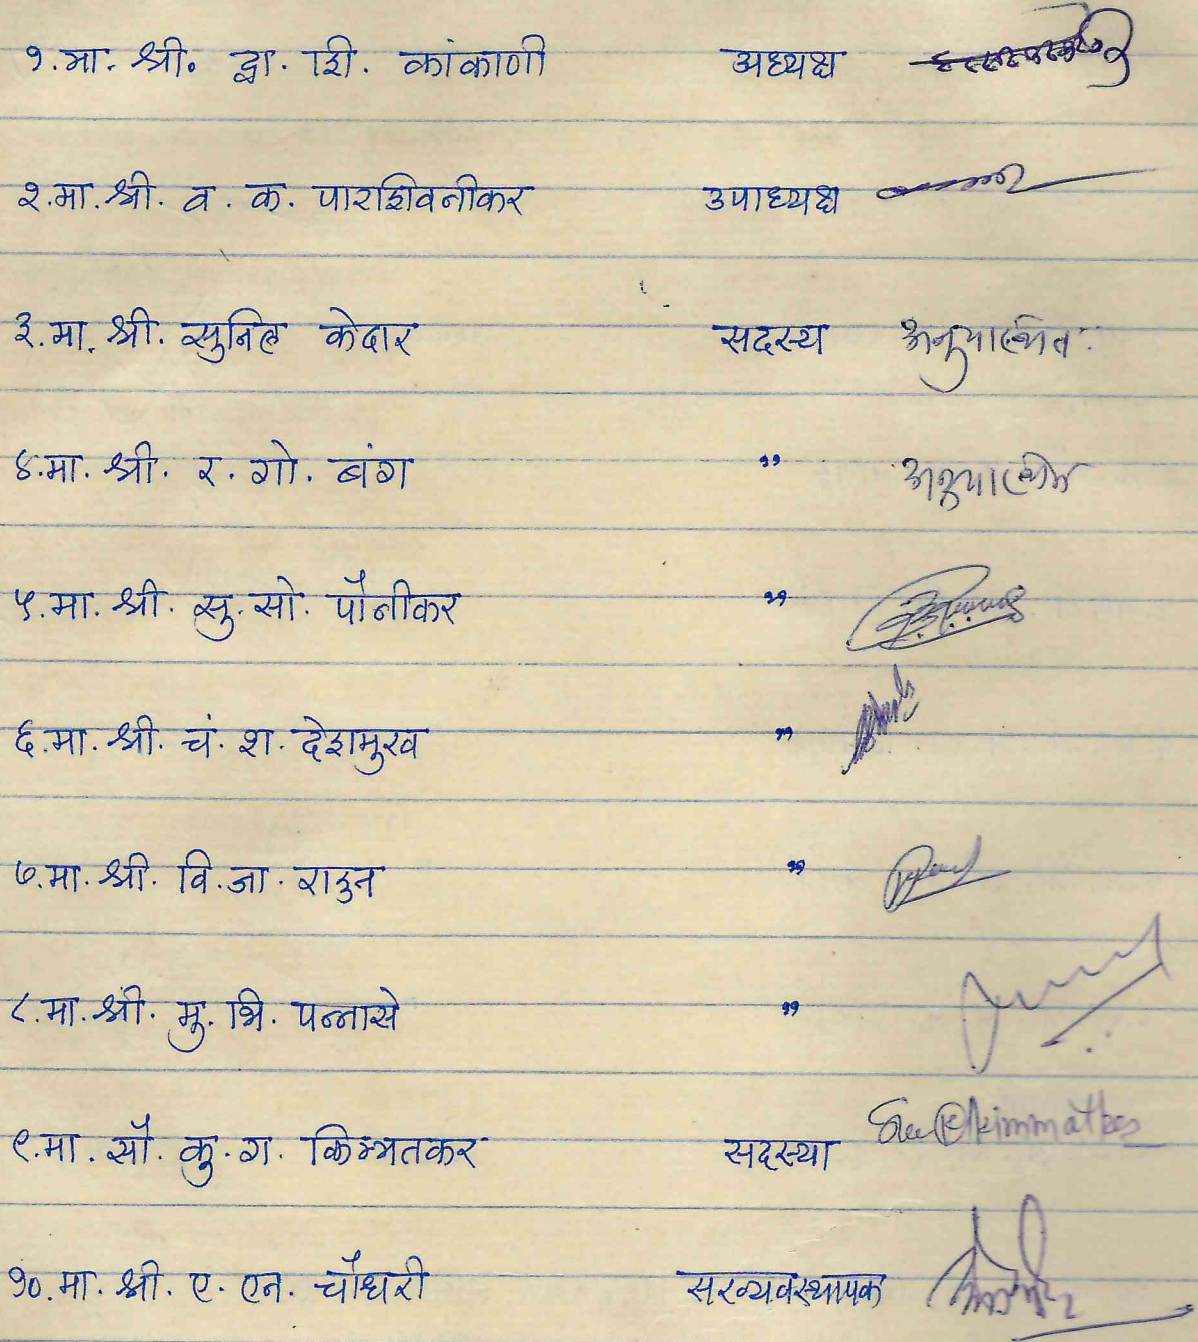 १. मा. श्री. द्वा. शि. कांकाणी अध्यक्ष
२. मा. श्री. व. क. पारशिवनीकर उपाध्यक्ष
३. मा. श्री. सुनिल केदार सदस्य अनुपस्थित
४. मा. श्री. र. गो. बंग " अनुपस्थित
५. मा. श्री. सु. सो. पौनीकर "
६. मा. श्री. चं. श. देशमुख "
७. मा. श्री. वि. जा. राऊत "
८. मा. श्री. मु. भि. पन्नासे "
९. मा. सौ. कु. ग. किम्मतकर सदस्या
१०. मा. श्री. ए. एन. चौधरी सरव्यवस्थापक